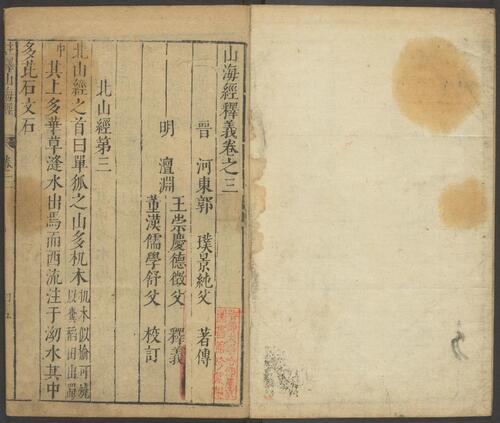 山海經釋義卷之三
晉 河東郭 璞景純父 著傳
明 澶淵
王崇慶德徵父 釋義
董漢儒學舒父 校訂
北山經第三
北山經之首曰單狐之山多机木机木似榆可燒以糞稻田出蜀
中其上多華草漨水出焉而西流注于泑水其中
多茈石文石